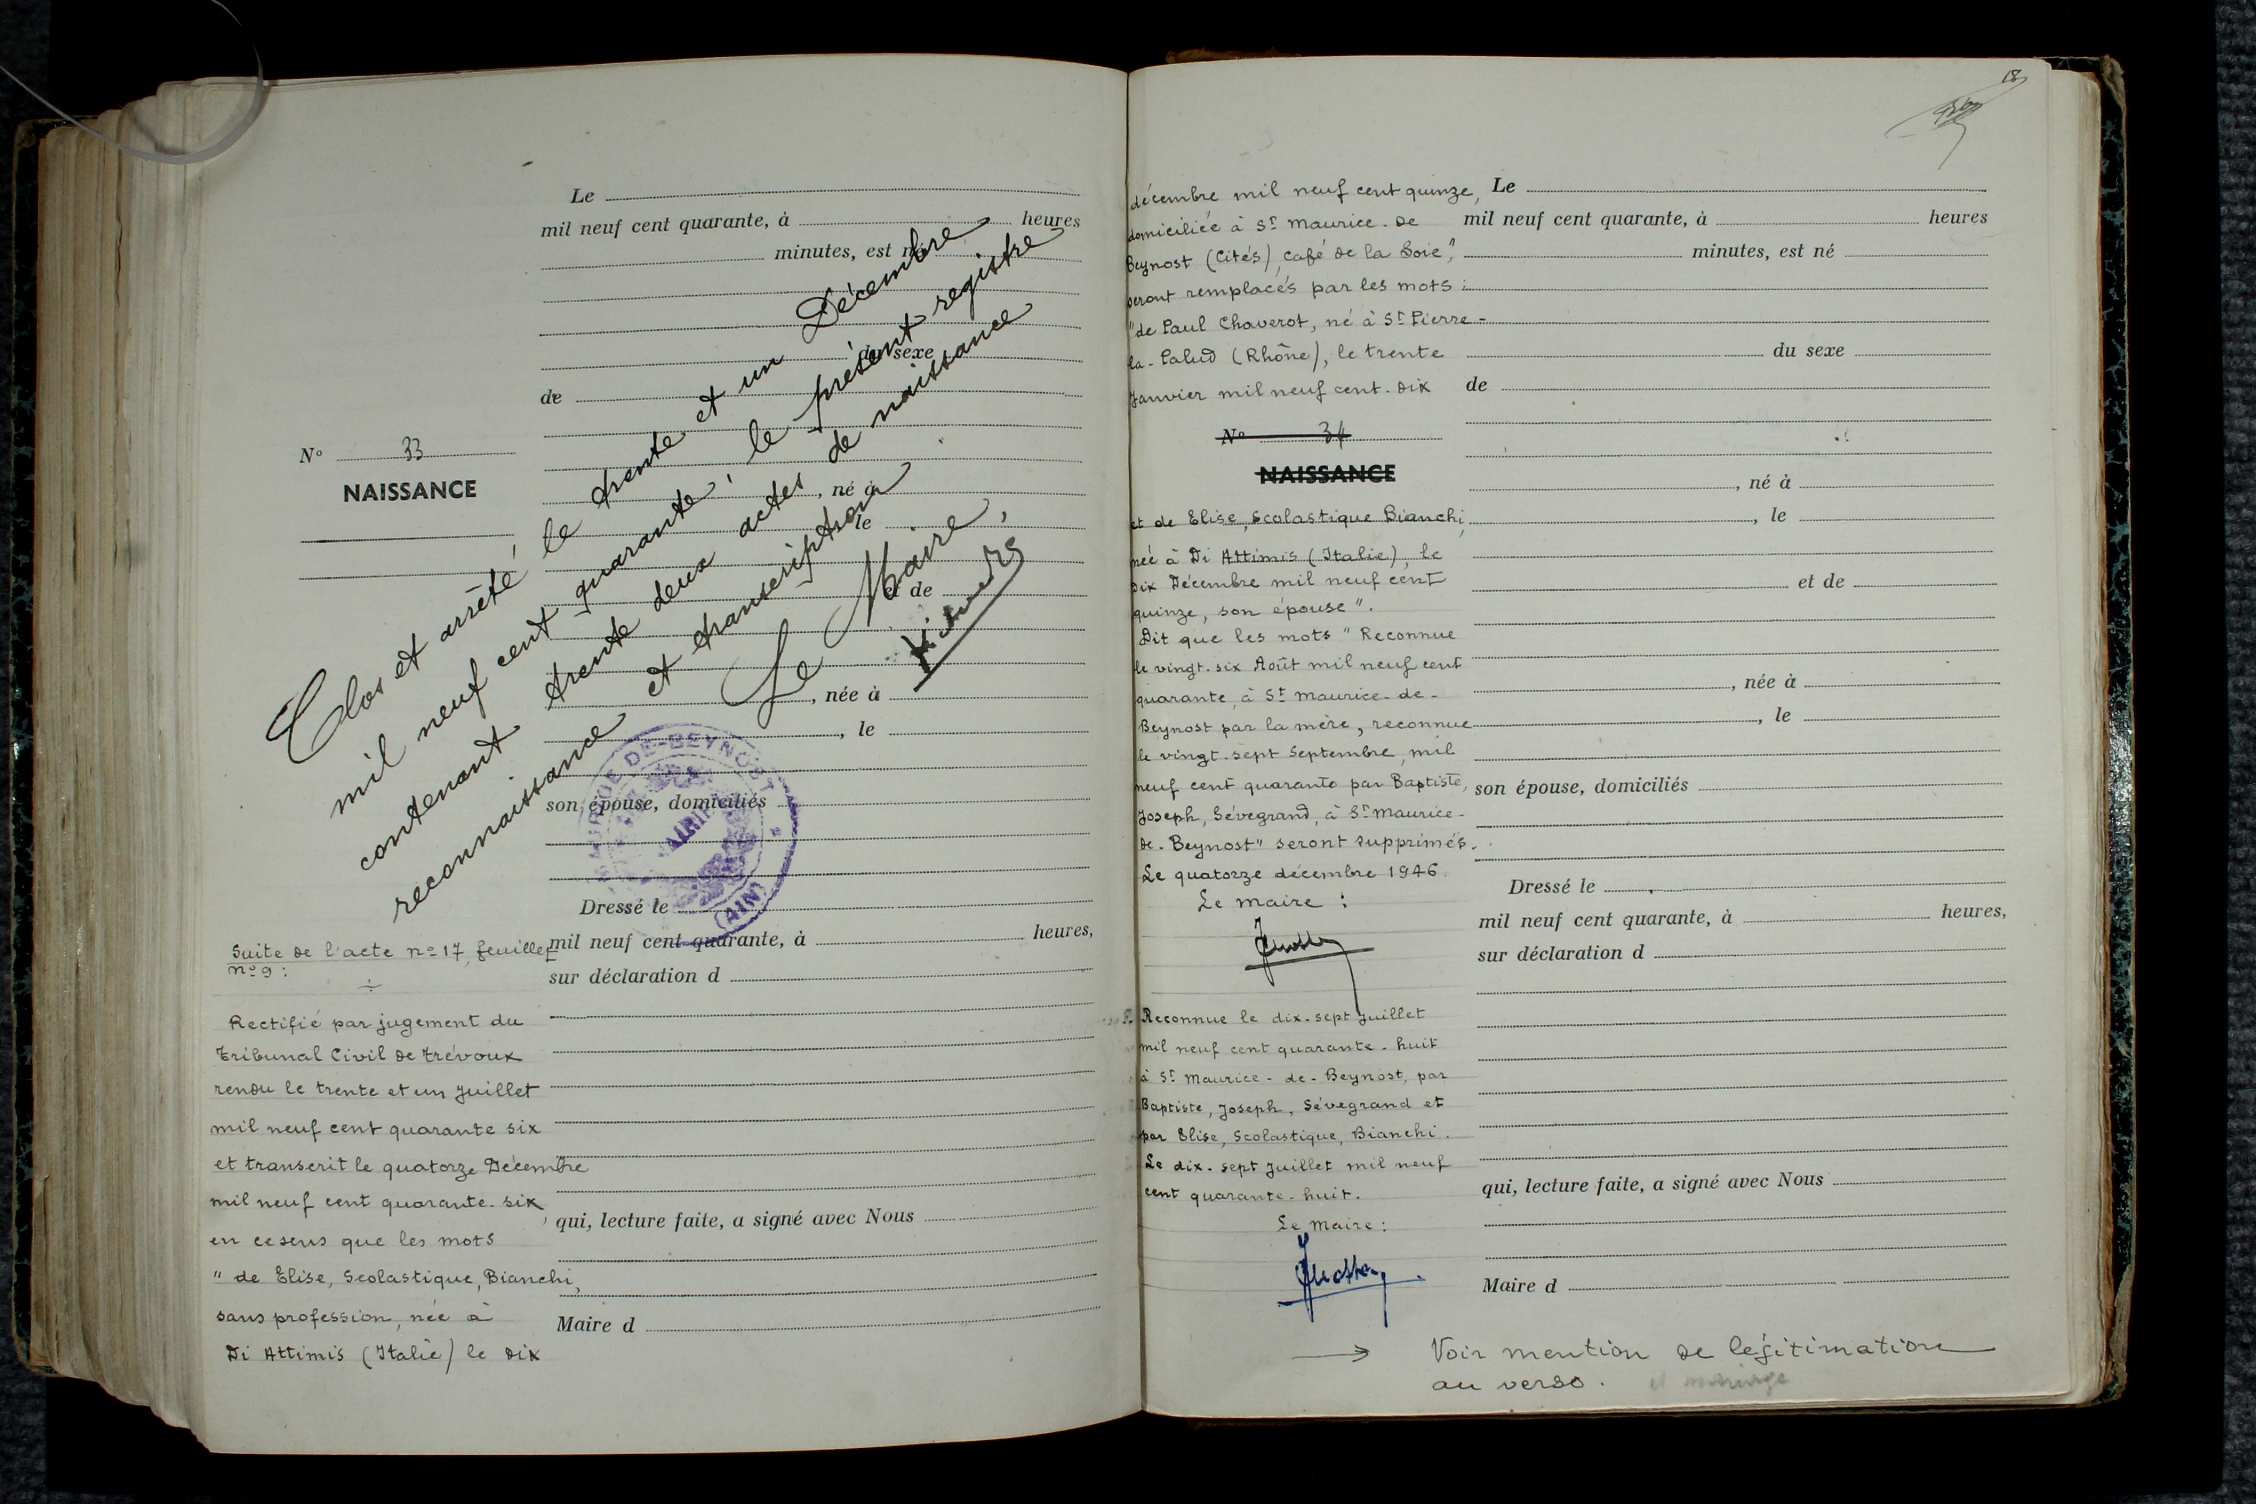 Le
mil neuf cent quarante, à heures
minutes, est né
du sexe
de
N° 33
NAISSANCE
, né à
, le
et de
, née à
, le
son épouse, domiciliés
Dressé le
mil neuf cent quarante, à heures,
sur déclaration d
qui, lecture faite, a signé avec Nous
Maire d
Clos et arrêté le trente et un Décembre
mil neuf cent quarante, le présent registre
contenant trente deux actes de naissance
reconnaissance et transcription
Le Maire,
DE-BEYNOST
MAIRIE
(AIN)
Suite de l'acte n° 17, feuillet
n° 9 :
Rectifié par jugement du
Tribunal Civil de Trévoux
rendu le trente et un Juillet
mil neuf cent quarante six
et transcrit le quatorze Décembre
mil neuf cent quarante-six,
en ce sens que les mots
" de Elise, Scolastique, Bianchi,
sans profession, née à
Di Attimis (Italie) le dix
18
décembre mil neuf cent quinze,
domiciliée à St Maurice-de
Beynost (Cités), café de la Soie",
seront remplacés par les mots :
"de Paul Chaverot, né à St Pierre-
la-Palud (Rhône), le trente
Janvier mil neuf cent-dix
N° 34
NAISSANCE
et de Elise, Scolastique Bianchi,
née à Di Attimis (Italie), le
dix Décembre mil neuf cent
quinze, son épouse".
Dit que les mots " Reconnue
le vingt-six Août mil neuf cent
quarante, à St Maurice-de-
Beynost par la mère, reconnue
le vingt-sept Septembre, mil
neuf cent quarante par Baptiste,
Joseph, Sévegrand, à St Maurice-
de-Beynost" seront supprimés.
Le quatorze décembre 1946.
Le Maire :
Reconnue le dix-sept Juillet
mil neuf cent quarante-huit
à St Maurice-de-Beynost, par
Baptiste, Joseph, Sévegrand et
par Elise, Scolastique, Bianchi.
Le dix-sept Juillet mil neuf
cent quarante-huit.
Le Maire :
Le
mil neuf cent quarante, à heures
minutes, est né
du sexe
de
, né à
, le
et de
, née à
, le
son épouse, domiciliés
Dressé le
mil neuf cent quarante, à heures,
sur déclaration d
qui, lecture faite, a signé avec Nous
Maire d
→ Voir mention de légitimation
au verso. et mariage